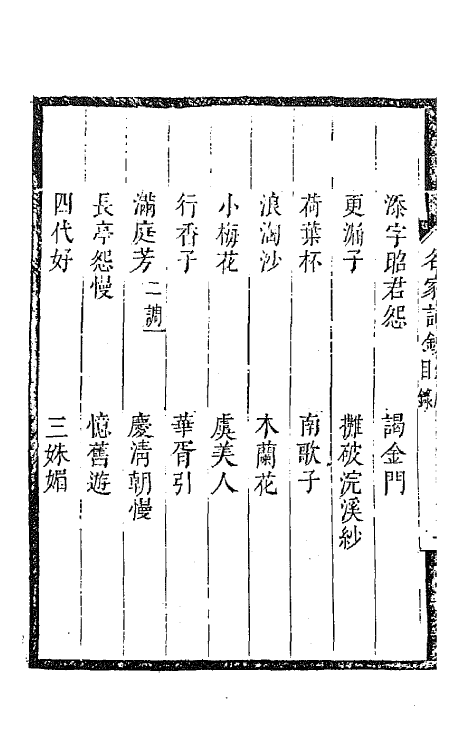 添字昭君怨 謁金門
更漏子 攤破浣溪紗
荷葉杯 南歌子
浪淘沙 木蘭花
小梅花 虞美人
行香子 華胥引
滿庭芳二調 慶清朝慢
長亭怨慢 憶舊遊
四代好 三姝媚
名家詞鈔 目錄